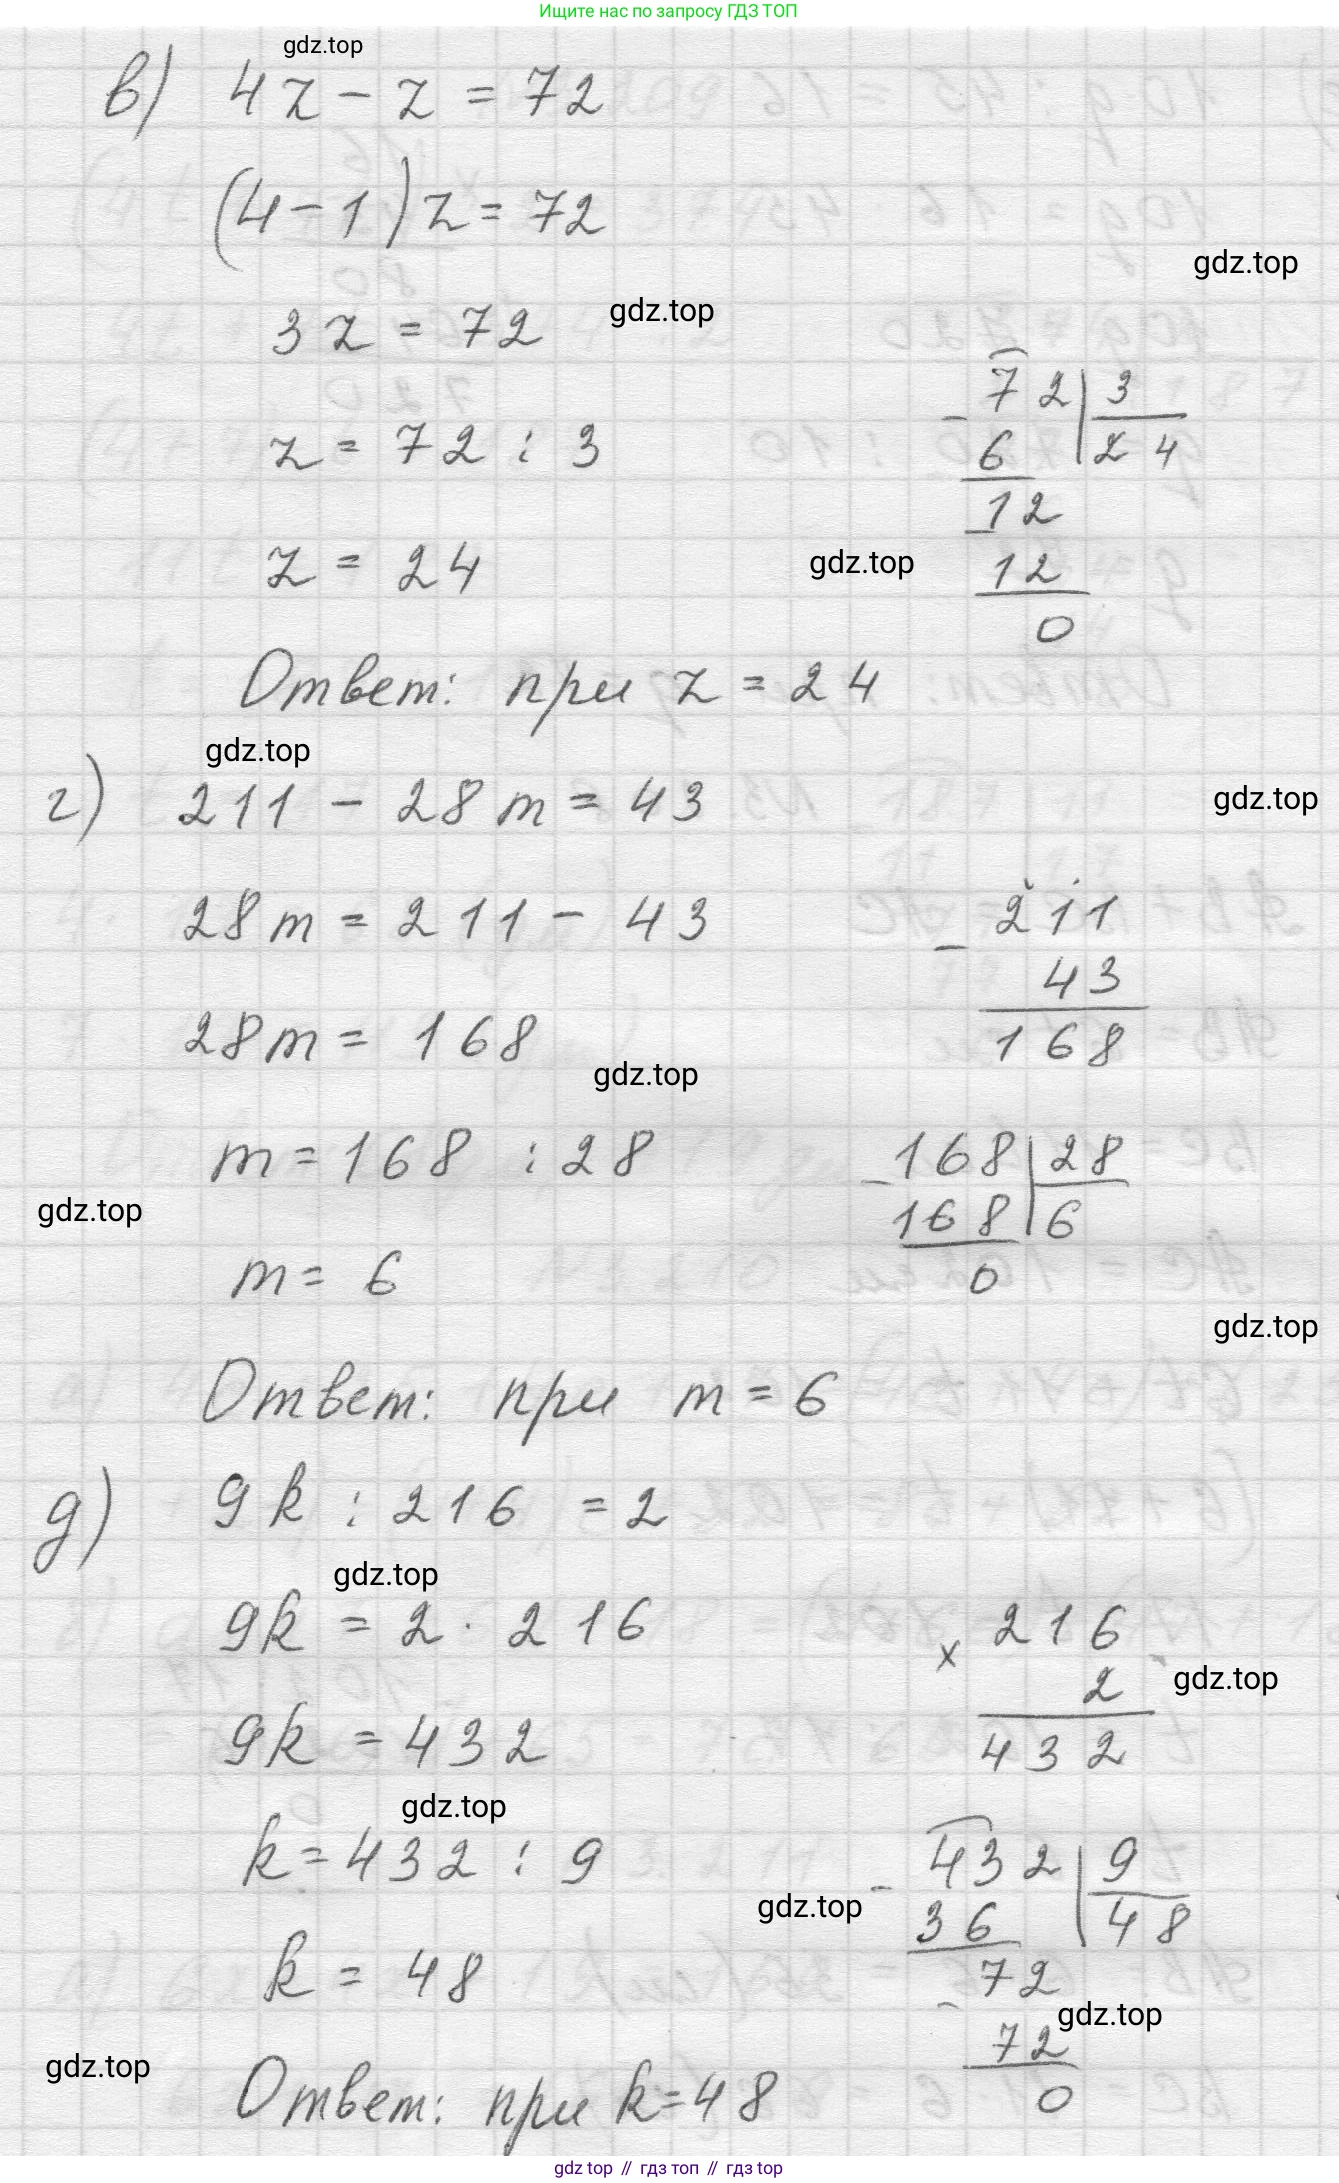 Ищите нас по запросу ГДЗ ТОП
gdz.top
в) 4z - z = 72
(4-1)z = 72
gdz.top
3z = 72
gdz.top
72 | 3
z = 72 : 3
- 6 | 24
- 12
z = 24
gdz.top
12
0
Ответ: при z = 24
gdz.top
г) 211 - 28m = 43
gdz.top
28m = 211 - 43
- 211
43
28m = 168
168
gdz.top
m = 168 : 28
- 168 | 28
gdz.top
168 | 6
m = 6
0
gdz.top
Ответ: при m = 6
д) 9k : 216 = 2
gdz.top
9k = 2 · 216
× 216
gdz.top
2
9k = 432
432
gdz.top
k = 432 : 9
- 432 | 9
gdz.top
36 | 48
k = 48
- 72
gdz.top
72
gdz.top
0
Ответ: при k = 48
gdz top // гдз топ // гдз top